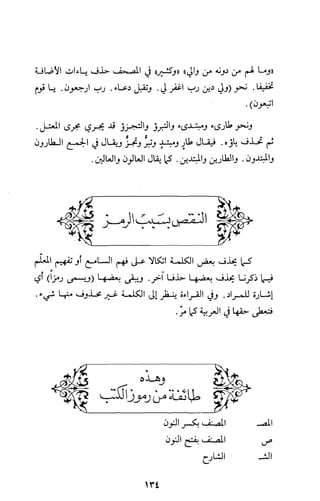 «وما لهم من دونه من والي» «وكثير» في المصحف حذف ياءات الأضافة
تخفيفا. نحو (ولي دين رب اغفر لي. وتقبل دعاء. رب ارجعون. يا قوم
اتبعون).
ونحو طارىء ومبتدىء والتبرؤ والتجزؤ قد يجري مجرى المعتل.
ثم تحذف ياؤه. فيقال طار ومبتد وتبر وتجز ويقال في الجمع الطارون
والمبتدون. والطارين والمبتدين. كما يقال العالون والعالين.
النقص بسبب الرمز
كما يحذف بعض الكلمة اتكالا على فهم السامع أو تفهيم المعلم
فيما ذكرنا يحذف بعضها حذفا آخر. ويبقى بعضها (ويسمى رمزاً) أي
إشارة للمراد. وفي القراءة ينظر إلى الكلمة غير محذوف منها شيء.
فتعطى حقها في العربية كما مرّ.
وهذه
طائفة من رموز الكتب
المصـ المصنف بكسر النون
ص المصنف بفتح النون
الشـ الشارح
١٣٤